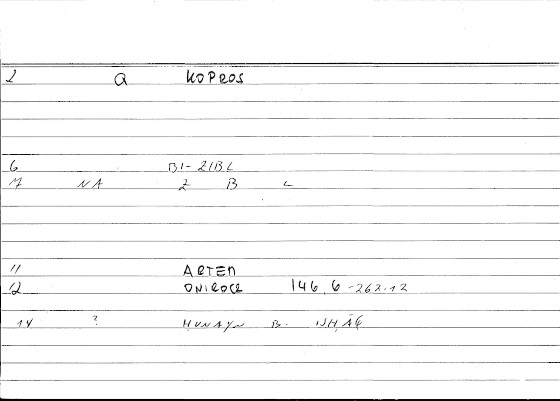 2 a KOPROS
6 BI-ZIBL
7 NA Z B L
11 ARTEM
12 ONIROCR 146,6-262.12
14 ? ḤUNAYN B. ISḤĀQ